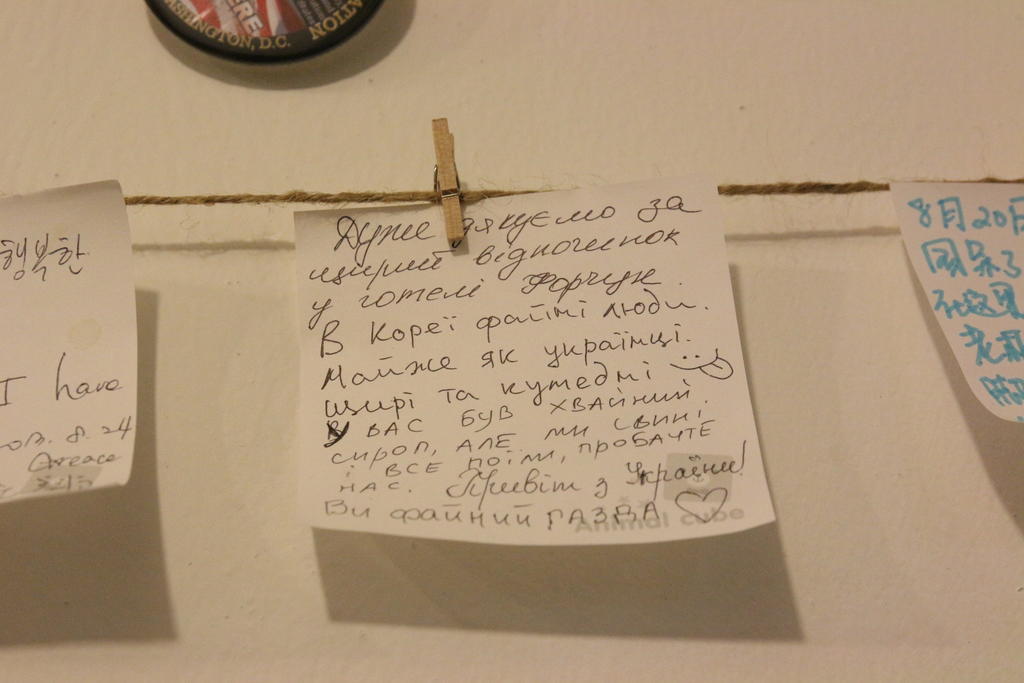 WASHINGTON, D.C.
행복한
I have
2013. 8. 24
Greece
Дуже дякуємо за
щирий відпочинок
у готелі Форчун.
В Кореї файні люди.
Майже як українці.
щирі та кумедні
У ВАС БУВ ХВАЙНИЙ
СИРОП, АЛЕ МИ СВИНІ
І ВСЕ ПОЇЛИ, ПРОБАЧТЕ
НАС. Привіт з України!
ВИ ФАЙНИЙ ГАЗДА
Animal cube
8月20日
国呆了
在这里
老